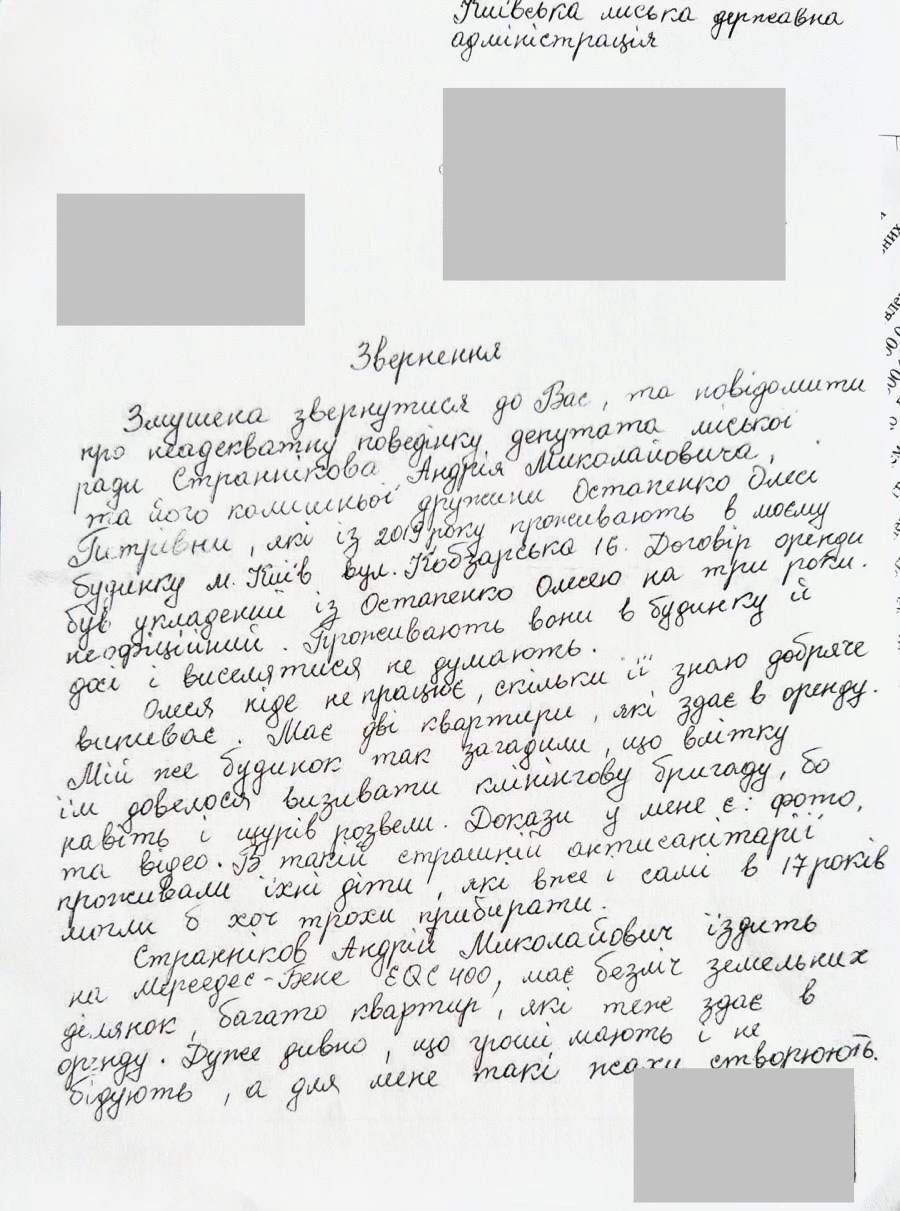 Київська міська державна
адміністрація
Звернення
Змушена звернутися до Вас, та повідомити
про неадекватну поведінку депутата міської
ради Страннікова Андрія Миколайовича,
та його колишньої дружини Остапенко Олесі
Петрівни, які із 2019 року проживають в моєму
будинку м. Київ вул. Кобзарська 16. Договір оренди
був укладений із Остапенко Олесею на три роки.
неофіційний. Проживають вони в будинку й
досі і виселятися не думають.
Олеся ніде не працює, скільки її знаю добряче
випиває. Має дві квартири, які здає в оренду.
Мій же будинок так загадили, що влітку
їм довелося визивати клінінгову бригаду, бо
навіть і щурів розвели. Докази у мене є: фото,
та відео. В такій страшній антисанітарії
проживали їхні діти, які вже і самі в 17 років
могли б хоч трохи прибирати.
Странніков Андрій Миколайович їздить
на Мерседес-Бенс EQC 400, має безліч земельних
ділянок, багато квартир, які теж здає в
оренду. Дуже дивно, що гроші мають і не
бідують, а для мене такі жахи створюють.